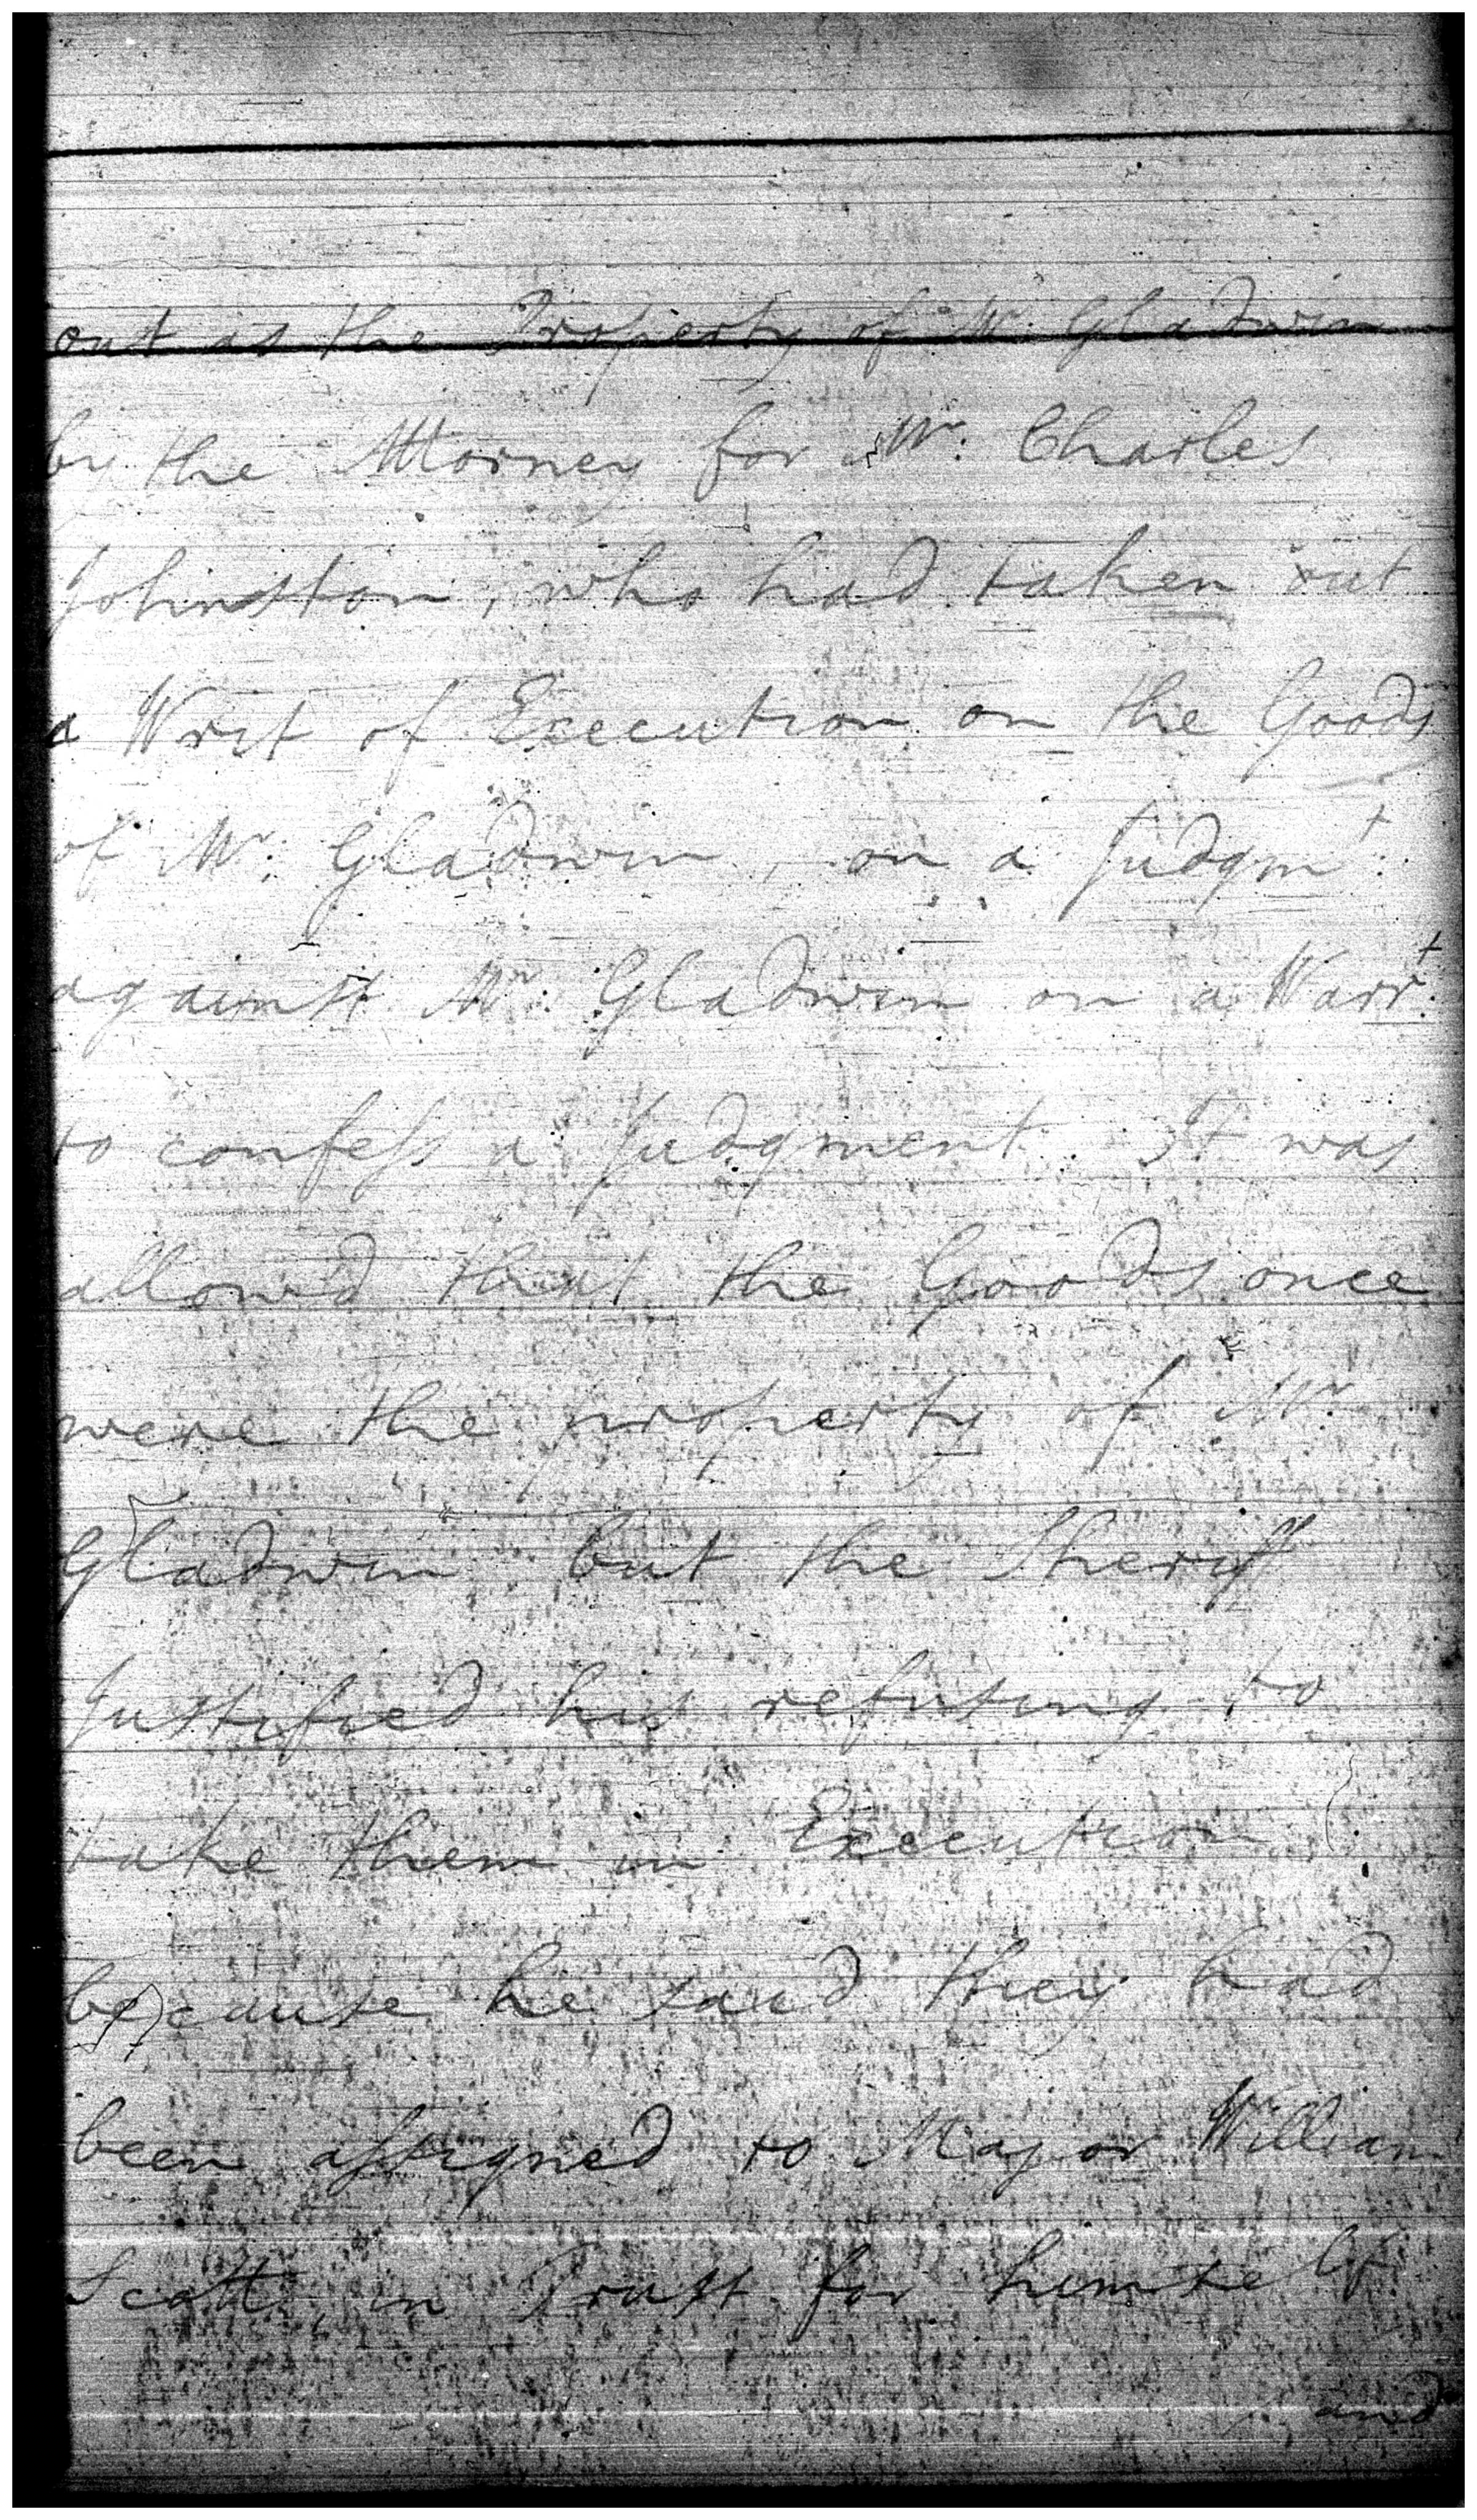 out as the Property of Mr. Gladwin
by the Attorney for Mr. Charles
Johnston, who had taken out
a Writ of Execution on the Goods
of Mr. Gladwin, on a Judgmt.
against Mr. Gladwin on a Warrt.
to confess a Judgment. It was
allow'd that the Goods once
were the property of Mr.
Gladwin but the Sheriff
Justified his refusing to
take them in Execution
because he said they had
been assigned to Major William
Scott, in Trust for himself
and